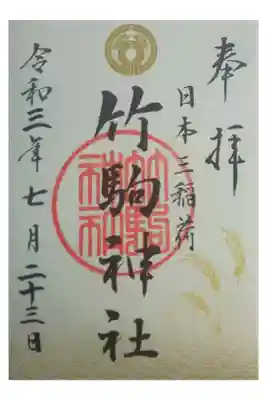 奉拝
日本三稲荷
竹駒神社
竹駒神社
令和三年七月二十三日